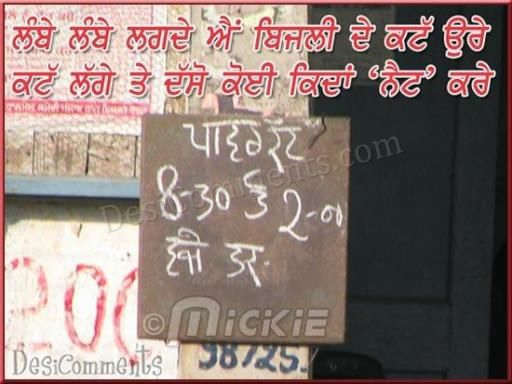 ਲੰਬੇ ਲੰਬੇ ਲਗਦੇ ਐਂ ਬਿਜਲੀ ਦੇ ਕਟੱ ਉਰੇ
ਕਟੱ ਲੱਗੇ ਤੇ ਦੱਸੋ ਕੋਈ ਕਿਦਾਂ ‘ਨੈਟ’ ਕਰੇ
ਪਾਵਰ ਕੱਟ
8-30 ਤੋਂ 2-00
ਵਜੇ ਤਕ
DesiComments.com
200
©MICKIE
98725
DesiComments